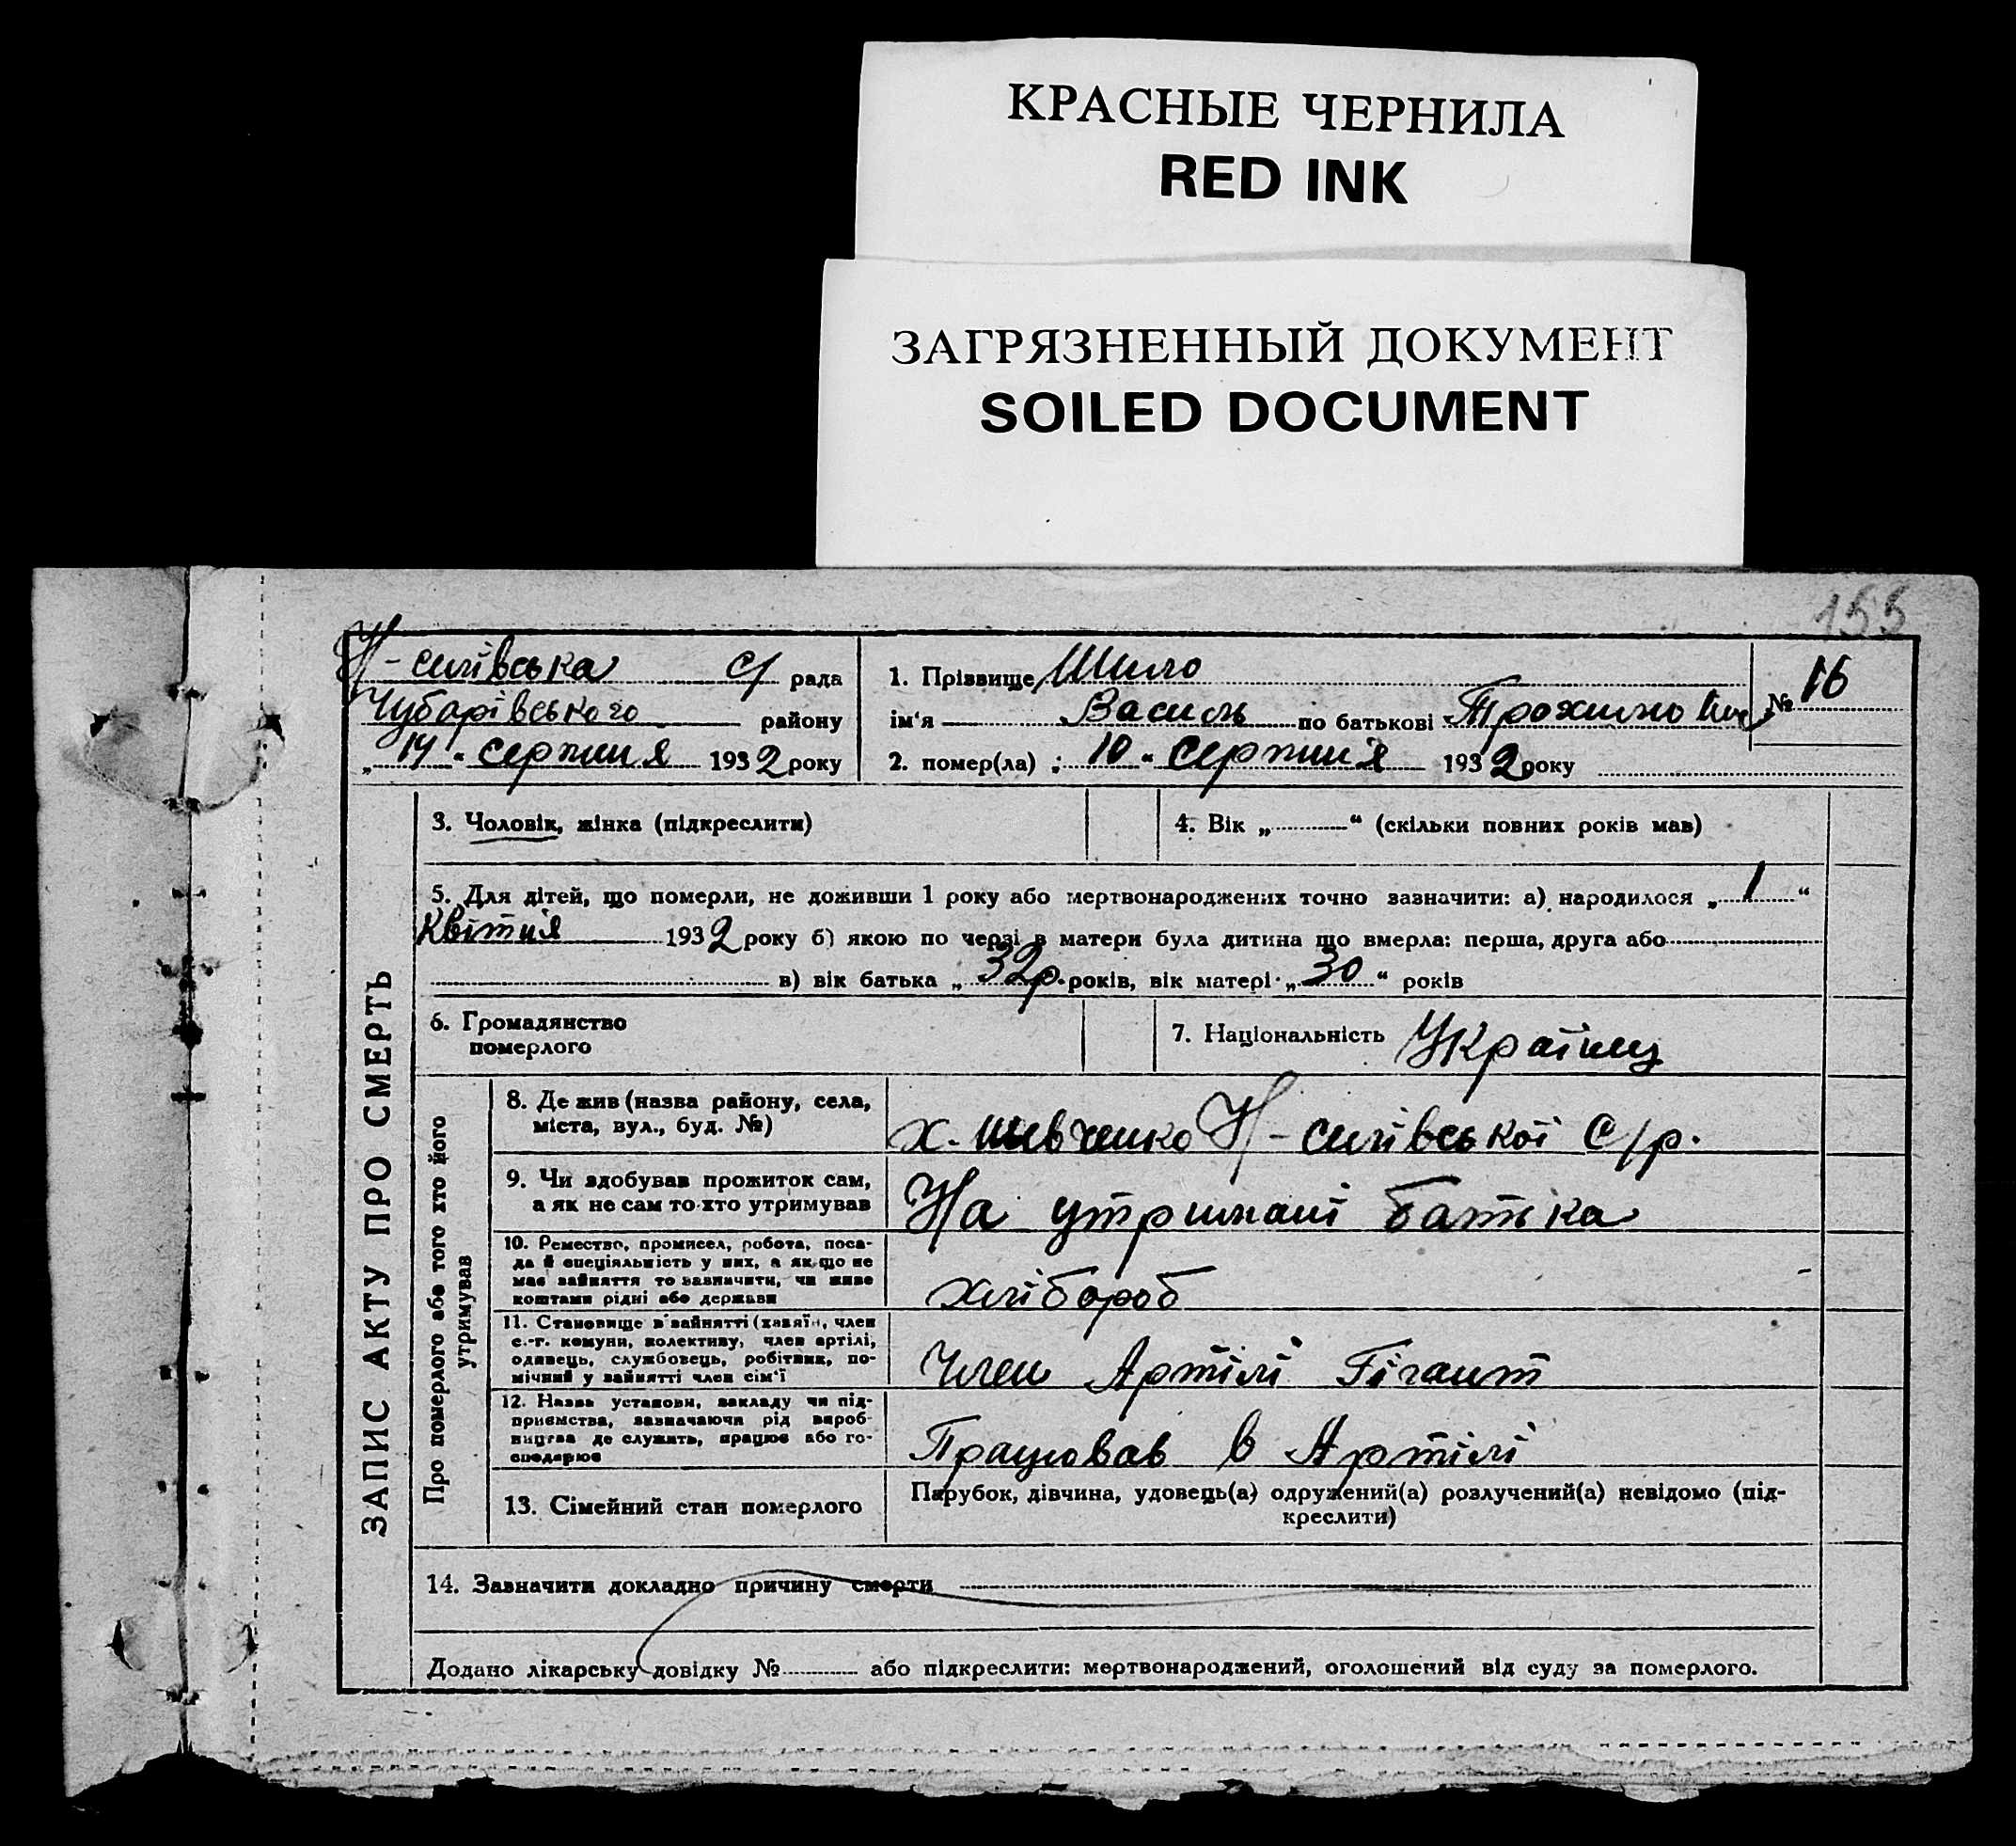 КРАСНЫЕ ЧЕРНИЛА
RED INK
ЗАГРЯЗНЕННЫЙ ДОКУМЕНТ
SOILED DOCUMENT
155
Н-силівська с/ рада
Чубарівського району
„14“ серпния 1932 року
1. Прізвище Шило
ім'я Василь по батькові Трохимович
№ 16
2. помер(ла) „10“ серпния 1932 року
ЗАПИС АКТУ ПРО СМЕРТЬ
3. Чоловік, жінка (підкреслити)
4. Вік „ “ (скільки повних років мав)
5. Для дітей, що померли, не доживши 1 року або мертвонароджених точно зазначити: а) народилося „1“
Квітня 1932 року б) якою по черзі в матери була дитина що вмерла: перша, друга або
в) вік батька „32р. років, вік матері „30“ років
6. Громадянство
померлого
7. Національність Українец
Про померлого або того хто його
утримував
8. Де жив (назва району, села,
міста, вул., буд. №)
х. Шевченко Н-силівської с/р.
9. Чи здобував прожиток сам,
а як не сам то хто утримував
На утримані батька
10. Ремество, промисел, робота, поса-
да й спеціяльність у них, а якщо не
має зайняття то зазначити, чи живе
коштами рідні або держави
хлібороб
11. Становище в зайнятті (хазяїн, член
с.-г. комуни, колективу, член артілі,
одинець, службовець, робітник, по-
мічний у зайнятті член сім'ї
Член Артілі Гігант
12. Назва установи, закладу чи під-
приємства, зазначаючи рід вироб-
ництва де служить, працює або го-
сподарює
Працював в Артілі
13. Сімейний стан померлого
Парубок, дівчина, удовець(а) одружений(а) розлучений(а) невідомо (під-
креслити)
14. Зазначити докладно причину смерти
Додано лікарську довідку № або підкреслити: мертвонароджений, оголошений від суду за померлого.